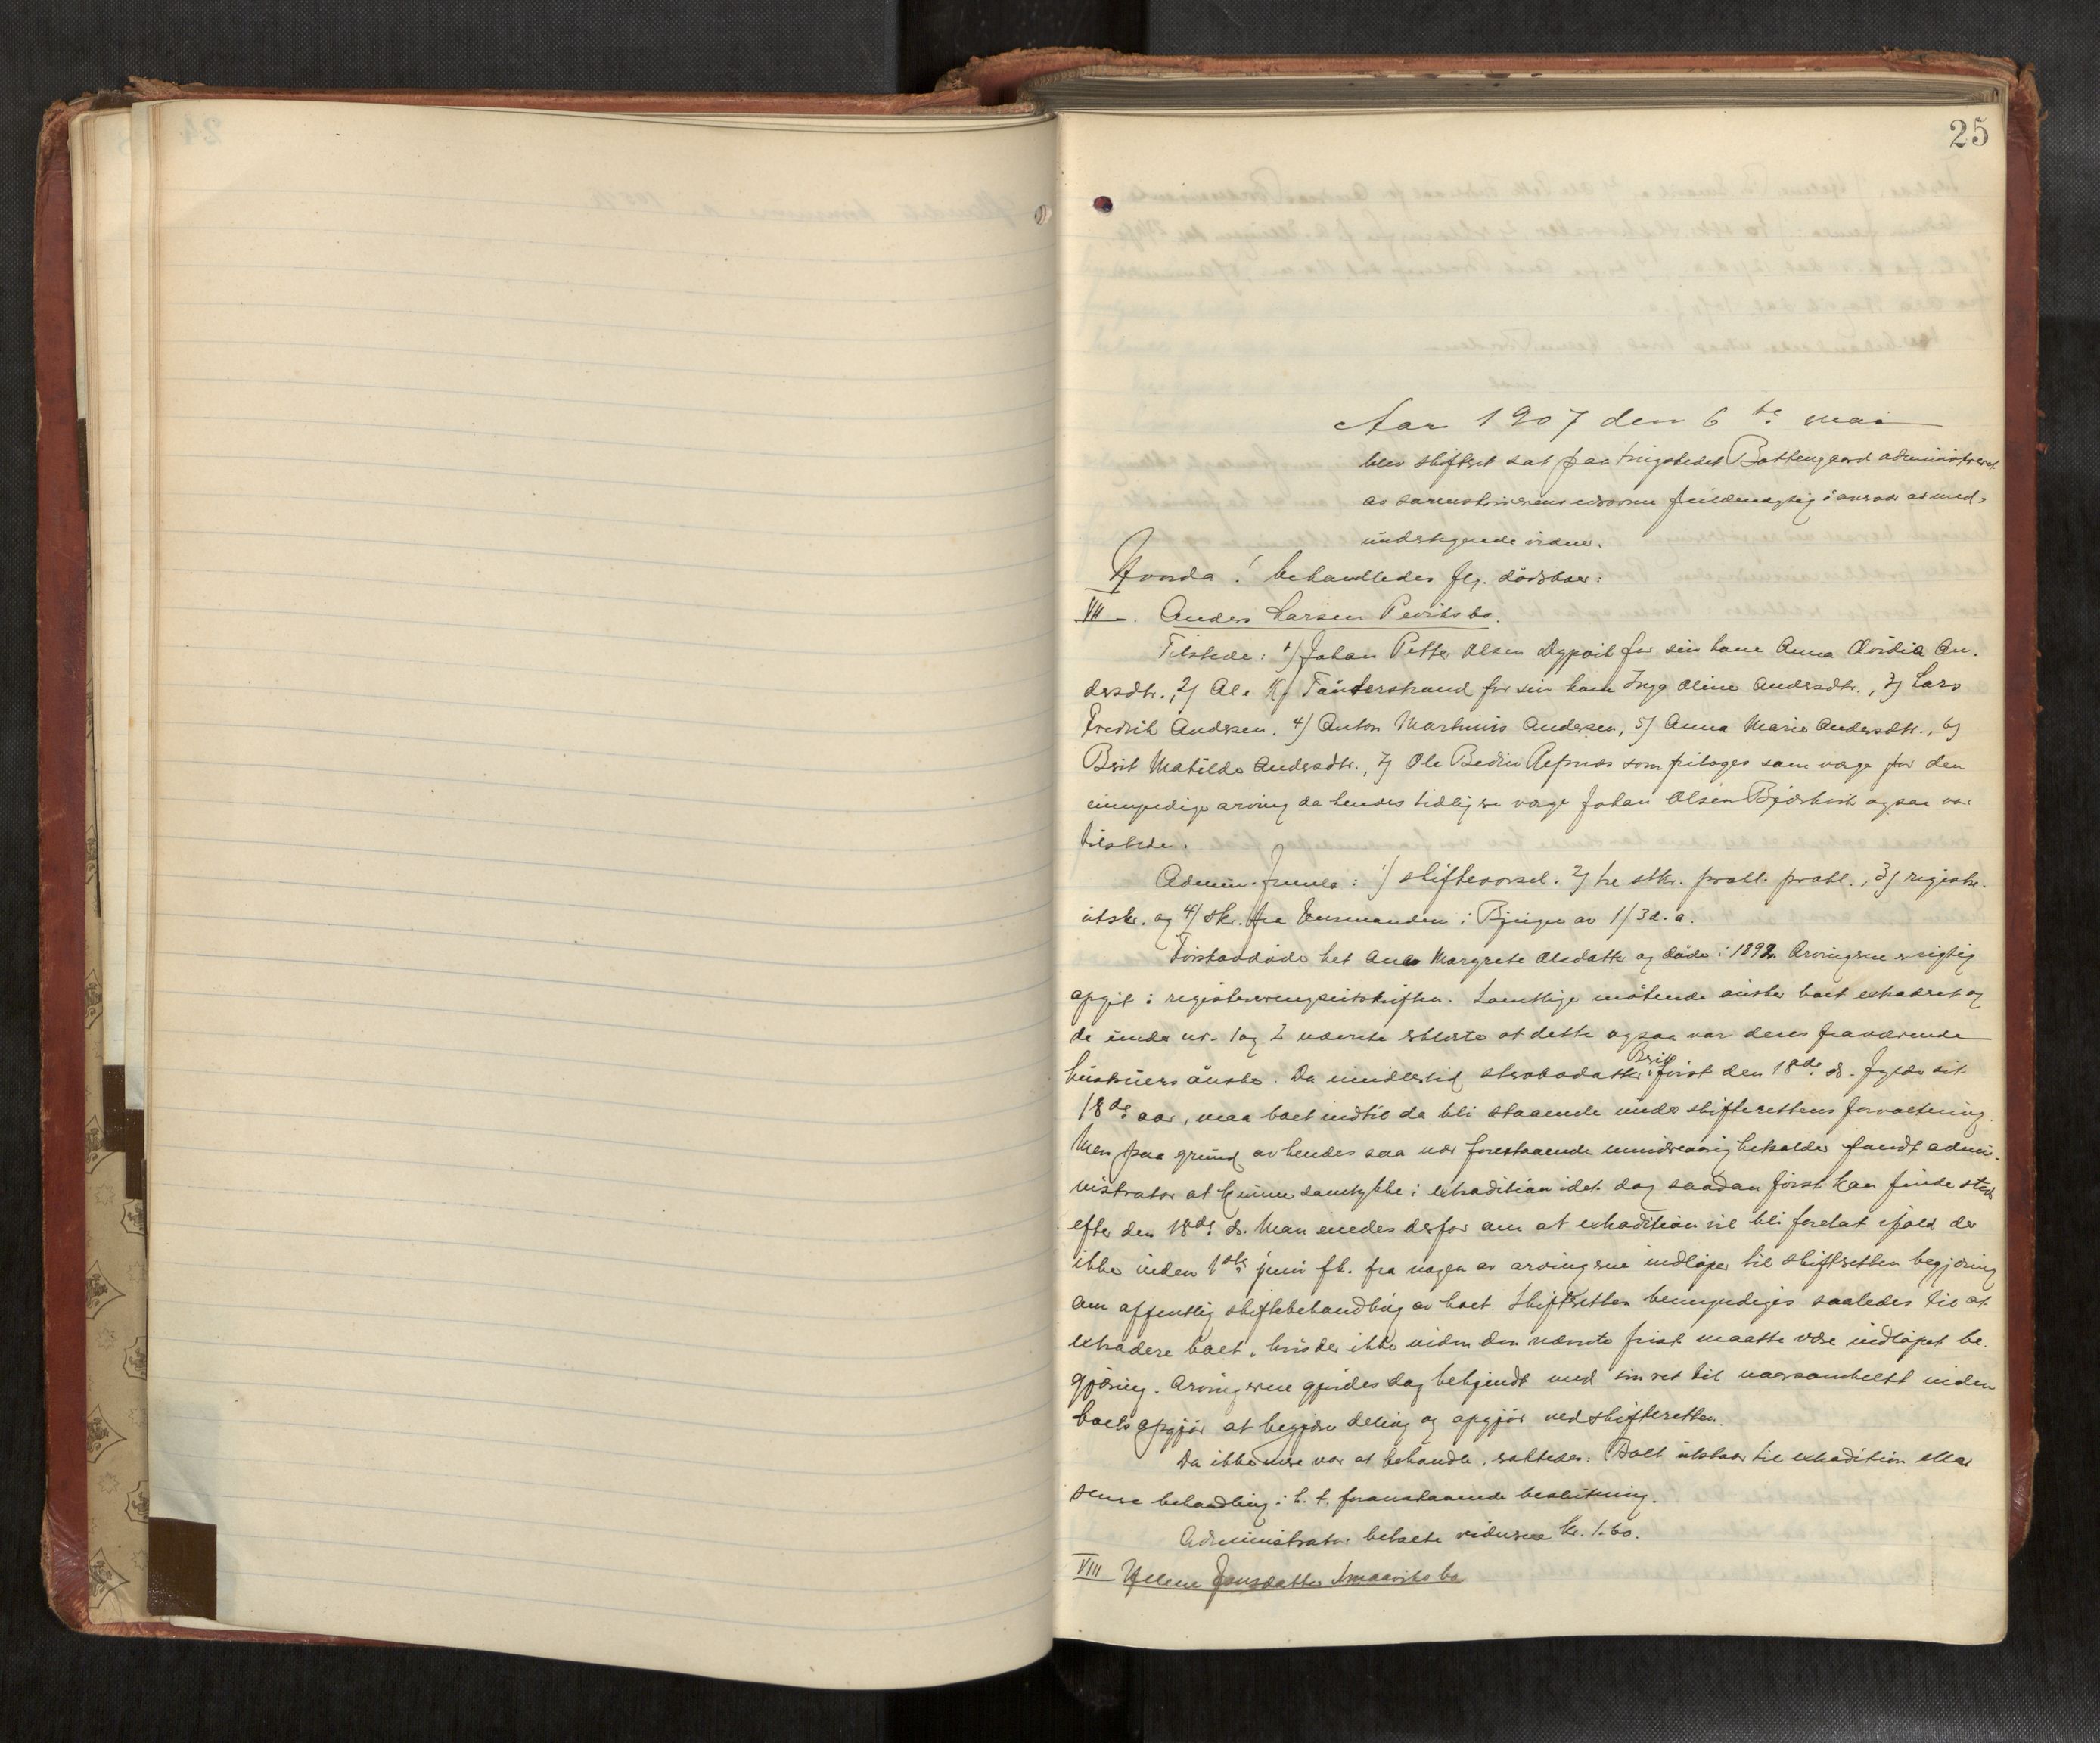 25
Aar 1907 den 6te mai
blev skifteret sat paa tingstedet Bottengaard administreret
av sorenskriverens edsvorne fuldmægtig i overvær av med-
undertegnede vidner.
Hvorda: behandledes flg. dødsboer:
VII. Anders Larsen Peviks bo.
Tilstede: 1) Johan Petter Olsen Dypvik for sin kone Anna Ovidia An-
dersdtr., 2) Ole K. Tønderstrand for sin kone Inga Oline Andersdtr., 3) Lars
Fredrik Andersen, 4) Anton Martinus Andersen, 5) Anna Marie Andersdtr., 6)
Berit Matilde Andersdtr., 7) Ole Bedin som for den
umyndige arving da hendes tidligere verge Johan Olsen ogsaa var
tilstede.
Admin. freml.: 1) skiftevarsel. 2) tre stkr. prokl. 3) registr.
utskr. og 4) skr. fra lensmanden i Bjugn av 1/3 d. a.
Førstavdøde het Ane Margrete Olsdatter og døde i 1892. Arvingerne er rigtig
opgit i registreringsutskriften. Samtlige møtende ønsket boet extradert og
de under nr. 1 og 2 nævnte erklærte at dette ogsaa var deres fraværende
hustruers ønske. Da imidlertid Berit først den 18de ds. fylder sit
18de aar, maa boet indtil da bli staaende under skifterettens forvaltning.
Men paa grund av hendes saa nær forestaaende mindreaarighetsalder fandt admi-
nistrator at kunne samtykke i extradition idet dog saadan først kan finde sted
efter den 18de ds. Man enedes derfor om at extradition vil bli foretat ifald der
ikke inden 1ste juni fk. fra nogen av arvingerne indløper til skifteretten begjæring
om offentlig skiftebehandling av boet. Skifteretten bemyndiges saaledes til at
extradere boet, hvis der ikke inden den nævnte frist maatte være indløpet be-
gjæring. Arvingerne gjordes dog bekjendt med sin ret til naarsomhelst inden
boets opgjør at begjære deling og opgjør ved skifteretten.
Da ikke mere var at behandle, sluttedes. Boet utstaar til extradition eller
senere behandling i h. t. foranstaaende beslutning.
Administrator betalte vidnerne kr. 1.60.
VIII Helene Jonsdatter Smaaviks bo